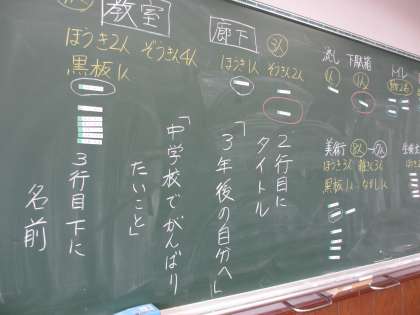 教室
ほうき2人 ぞうきん4人
黒板1人
廊下
3人
ほうき1人 ぞうきん2人
流し
1人
下駄箱
1人
トイレ
美術
8人→7人
ほうき3人 雑きん3人
黒板1人 ながし1人
2行目に
タイトル
「3年後の自分へ」
「中学校でがんばり
たいこと」
3行目下に
名前